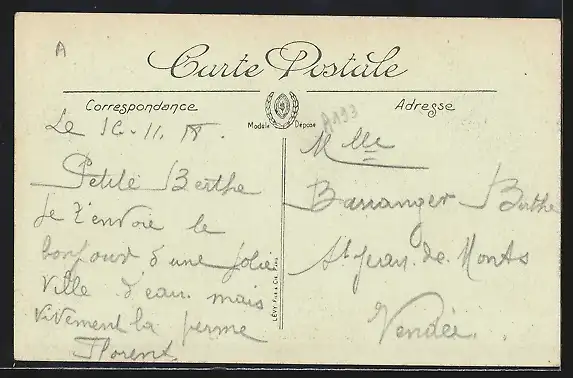 A
Carte Postale
Correspondance
Modèle Déposé
Adresse
A193
Le 16-11. 18.
Petite Berthe
Je t'envoie le
bonjour d'une jolie
ville d'eau. mais
vivement la perme
Florent
LÉVY Fils & Cie, Paris
Mlle
Barranger Berthe
St Jean. de. Monts
Vendée.